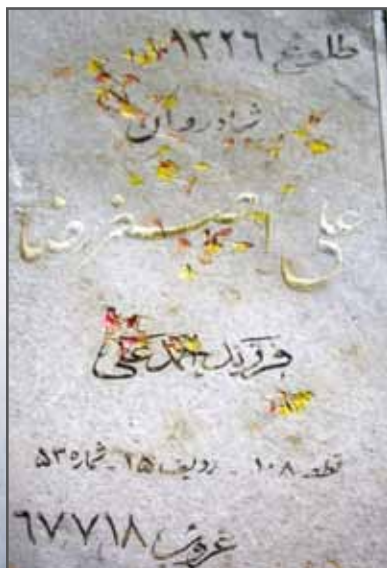 طلوع ۱۳۲۶
شادروان
علی رضا
فرزند علی
قطعه ۱۰۸ - ردیف ۱۵ - شماره ۵۳
غروب ۶۷۷۱۸